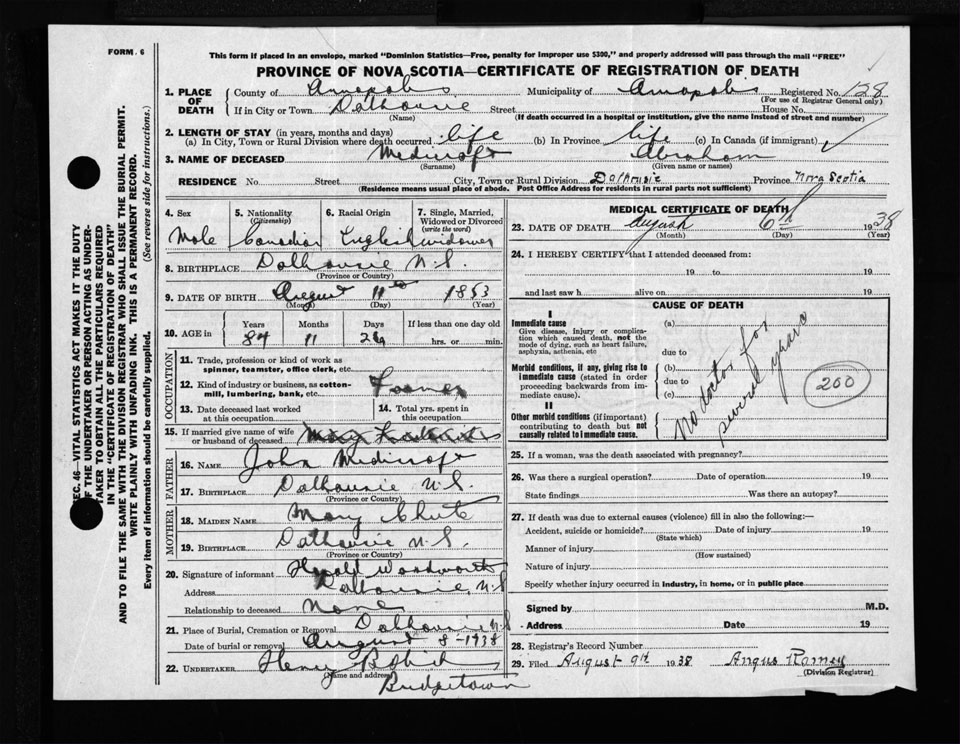 FORM 6
This form if placed in an envelope, marked "Dominion Statistics—Free, penalty for improper use $300," and properly addressed will pass through the mail "FREE"
PROVINCE OF NOVA SCOTIA—CERTIFICATE OF REGISTRATION OF DEATH
1. PLACE OF DEATH County of Annapolis Municipality of Annapolis Registered No. 128
(For use of Registrar General only)
If in City or Town Dalhousie Street House No.
(Name) (If death occurred in a hospital or institution, give the name instead of street and number)
2. LENGTH OF STAY (in years, months and days)
(a) In City, Town or Rural Division where death occurred life (b) In Province life (c) In Canada (if immigrant) ✓
3. NAME OF DECEASED Medicraft Abraham
(Surname) (Given name or names)
RESIDENCE No. Street City, Town or Rural Division Dalhousie Province Nova Scotia
(Residence means usual place of abode. Post Office Address for residents in rural parts not sufficient)
4. Sex 5. Nationality (Citizenship) 6. Racial Origin 7. Single, Married, Widowed or Divorced (write the word)
Male Canadian English widower
8. BIRTHPLACE Dalhousie N.S.
(Province or Country)
9. DATE OF BIRTH August 11th 1853
(Month) (Day) (Year)
10. AGE in Years Months Days If less than one day old
84 11 26 hrs. or min.
OCCUPATION
11. Trade, profession or kind of work as spinner, teamster, office clerk, etc.
12. Kind of industry or business, as cotton-mill, lumbering, bank, etc. Farmer
13. Date deceased last worked at this occupation
14. Total yrs. spent in this occupation
15. If married give name of wife or husband of deceased Mary
FATHER
16. NAME John Medicraft
17. BIRTHPLACE Dalhousie N.S.
(Province or Country)
MOTHER
18. MAIDEN NAME Mary Chute
19. BIRTHPLACE Dalhousie N.S.
(Province or Country)
20. Signature of informant Harold Woodworth
Address Dalhousie, N.S
Relationship to deceased None
21. Place of Burial, Cremation or Removal Dalhousie N.S
Date of burial or removal August 8-1938
22. UNDERTAKER Henry
(Name and address) Bridgetown
MEDICAL CERTIFICATE OF DEATH
23. DATE OF DEATH August 6th 1938
(Month) (Day) (Year)
24. I HEREBY CERTIFY that I attended deceased from:
19 to 19
and last saw h alive on 19
CAUSE OF DEATH
I
Immediate cause (a)
Give disease, injury or complication which caused death, not the mode of dying, such as heart failure, asphyxia, asthenia, etc
due to
Morbid conditions, if any, giving rise to immediate cause (stated in order proceeding backwards from immediate cause). (b)
due to
(c)
II
Other morbid conditions (if important) contributing to death but not causally related to immediate cause.
No doctor for several years
200
25. If a woman, was the death associated with pregnancy?
26. Was there a surgical operation? Date of operation 19
State findings Was there an autopsy?
27. If death was due to external causes (violence) fill in also the following:—
Accident, suicide or homicide? Date of injury 19
(State which)
Manner of injury
(How sustained)
Nature of injury
Specify whether injury occurred in industry, in home, or in public place
Signed by M.D.
Address Date 19
28. Registrar's Record Number
29. Filed August 9th 1938 Angus Romey
(Division Registrar)
SEC. 46—VITAL STATISTICS ACT MAKES IT THE DUTY
OF THE UNDERTAKER OR PERSON ACTING AS UNDER-
TAKER TO OBTAIN ALL THE PARTICULARS REQUIRED
IN THE "CERTIFICATE OF REGISTRATION OF DEATH"
AND TO FILE THE SAME WITH THE DIVISION REGISTRAR WHO SHALL ISSUE THE BURIAL PERMIT.
WRITE PLAINLY WITH UNFADING INK. THIS IS A PERMANENT RECORD.
Every item of information should be carefully supplied. (See reverse side for instructions.)